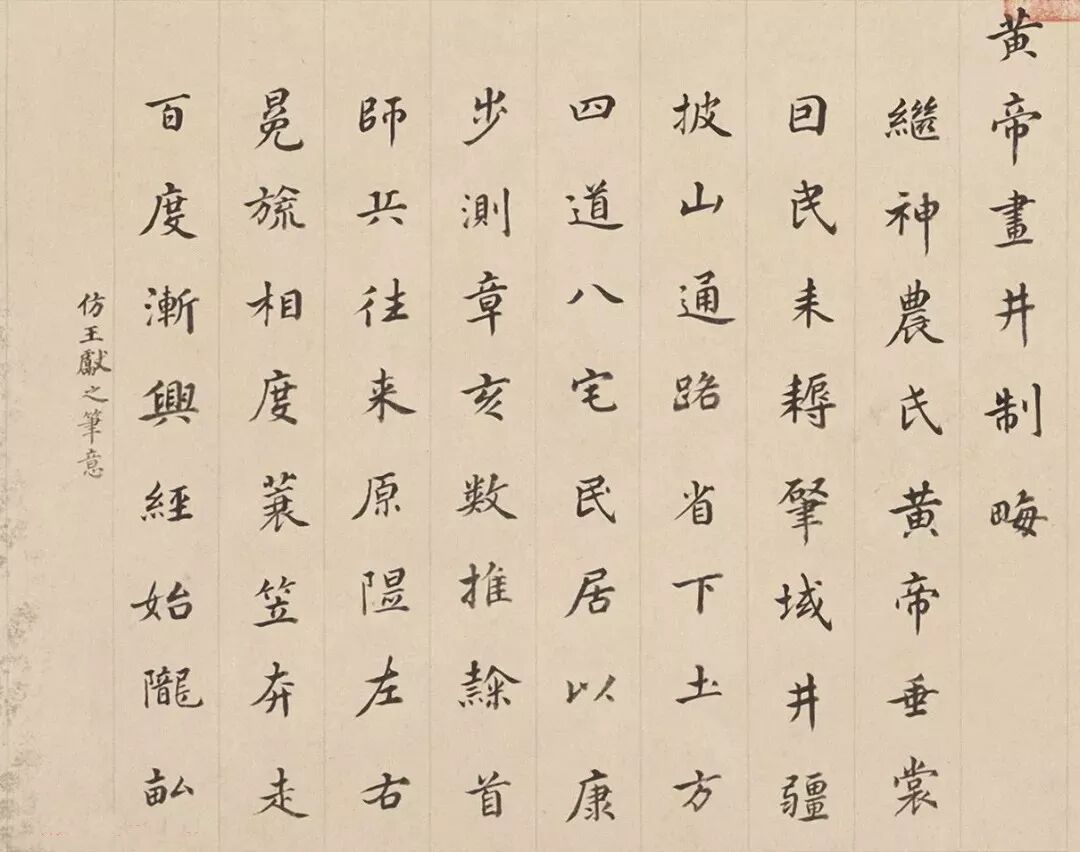 黃帝畫井制畮
繼神農氏黃帝垂裳
囙民耒耨肇域井疆
披山通路省下土方
四道八宅民居以康
步測章亥數推隸首
師兵往來原隰左右
冕旒相度蓑笠奔走
百度漸興經始隴畝
仿王獻之筆意